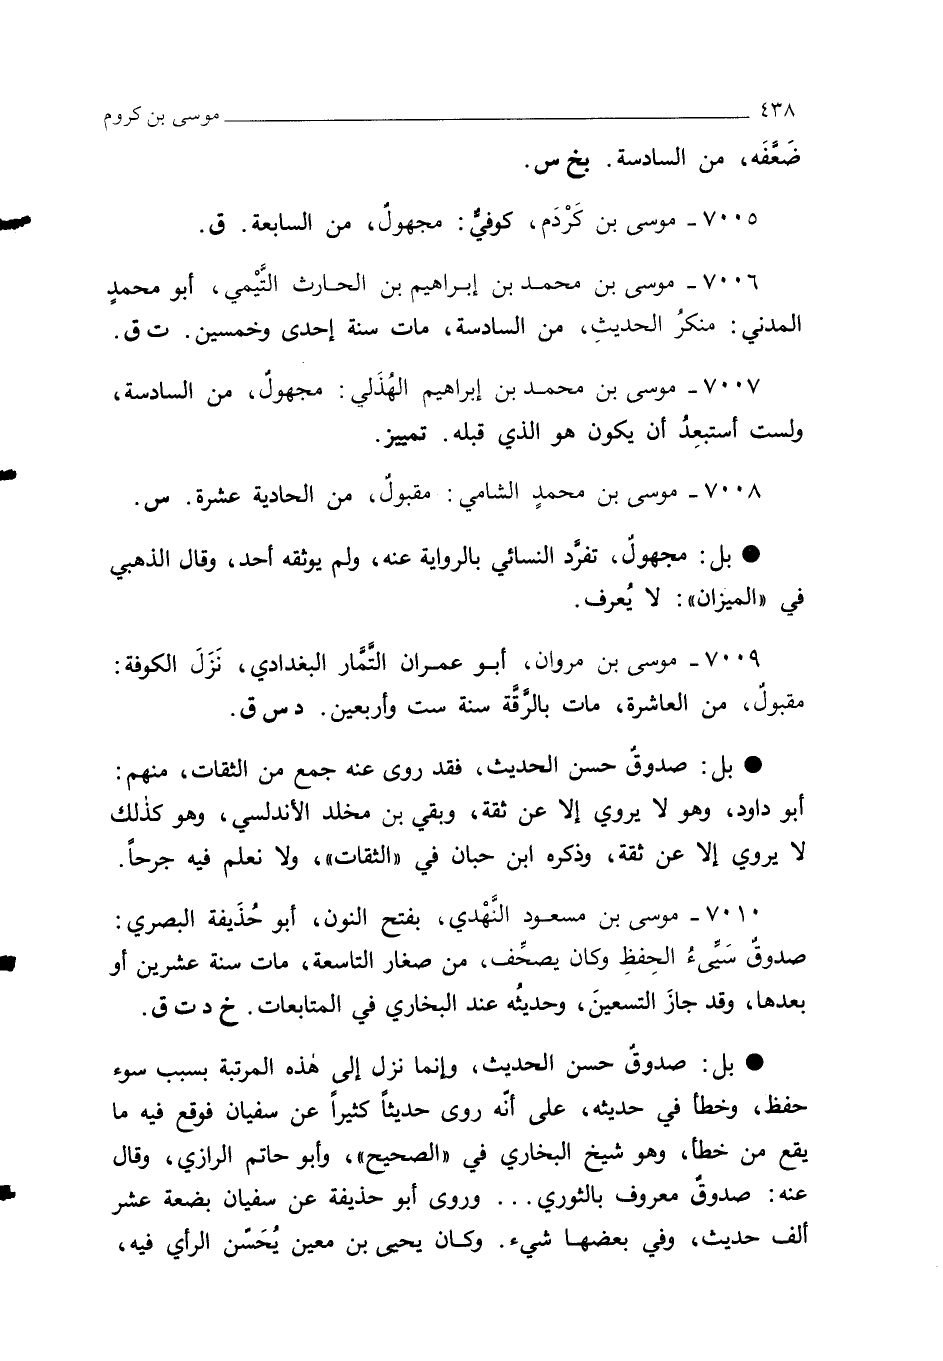 ٤٣٨ موسى بن كروم
ضَعَّفَه، من السادسة. بخ س.
٧٠٠٥ - موسى بن كَرْدَم، كوفيٌّ: مجهولٌ، من السابعة. ق.
٧٠٠٦ - موسى بن محمد بن إبراهيم بن الحارث التَّيْمي، أبو محمدٍ
المدني: منكرُ الحديثِ، من السادسة، مات سنة إحدى وخمسين. ت ق.
٧٠٠٧ - موسى بن محمد بن إبراهيم الهُذَلي: مجهولٌ، من السادسة،
ولست أستبعِدُ أن يكون هو الذي قبله. تمييز.
٧٠٠٨ - موسى بن محمدٍ الشامي: مقبولٌ، من الحادية عشرة. س.
● بل: مجهولٌ، تفرَّد النسائي بالرواية عنه، ولم يوثقه أحد، وقال الذهبي
في «الميزان»: لا يُعرف.
٧٠٠٩ - موسى بن مروان، أبو عمران التَّمَّار البغدادي، نَزَلَ الكوفة:
مقبولٌ، من العاشرة، مات بالرَّقَّة سنة ست وأربعين. د س ق.
● بل: صدوقٌ حسن الحديث، فقد روى عنه جمع من الثقات، منهم:
أبو داود، وهو لا يروي إلا عن ثقة، وبقي بن مخلد الأندلسي، وهو كذٰلك
لا يروي إلا عن ثقة، وذكره ابن حبان في «الثقات»، ولا نعلم فيه جرحاً.
٧٠١٠ - موسى بن مسعود النَّهْدي، بفتح النون، أبو حُذَيفة البصري:
صدوقٌ سَيِّىءُ الحِفظِ وكان يصحِّف، من صغار التاسعة، مات سنة عشرين أو
بعدها، وقد جازَ التسعينَ، وحديثُه عند البخاري في المتابعات. خ د ت ق.
● بل: صدوقٌ حسن الحديث، وإنما نزل إلى هٰذه المرتبة بسبب سوء
حفظ، وخطأ في حديثه، على أنّه روى حديثاً كثيراً عن سفيان فوقع فيه ما
يقع من خطأ، وهو شيخ البخاري في «الصحيح»، وأبو حاتم الرازي، وقال
عنه: صدوقٌ معروف بالثوري... وروى أبو حذيفة عن سفيان بضعة عشر
ألف حديث، وفي بعضها شيء. وكان يحيى بن معين يُحَسّن الرأي فيه،